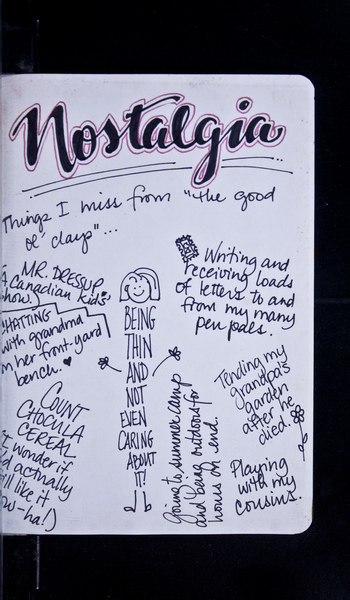 Nostalgia
Things I miss from "the good
ol' days"...
MR. DRESSUP
Canadian kids'
show.)
CHATTING
with grandma
in her front yard
bench.
COUNT
CHOCULA
CEREAL
wonder if
actually
still like it
BEING
THIN
AND
NOT
EVEN
CARING
ABOUT
IT!
Writing and
receiving loads
of letters to and
from my many
pen pals.
Tending my
grandpa's
garden
after he
died.
Going to summer camp
and being outdoors for
hours on end.
Playing
with my
cousins.